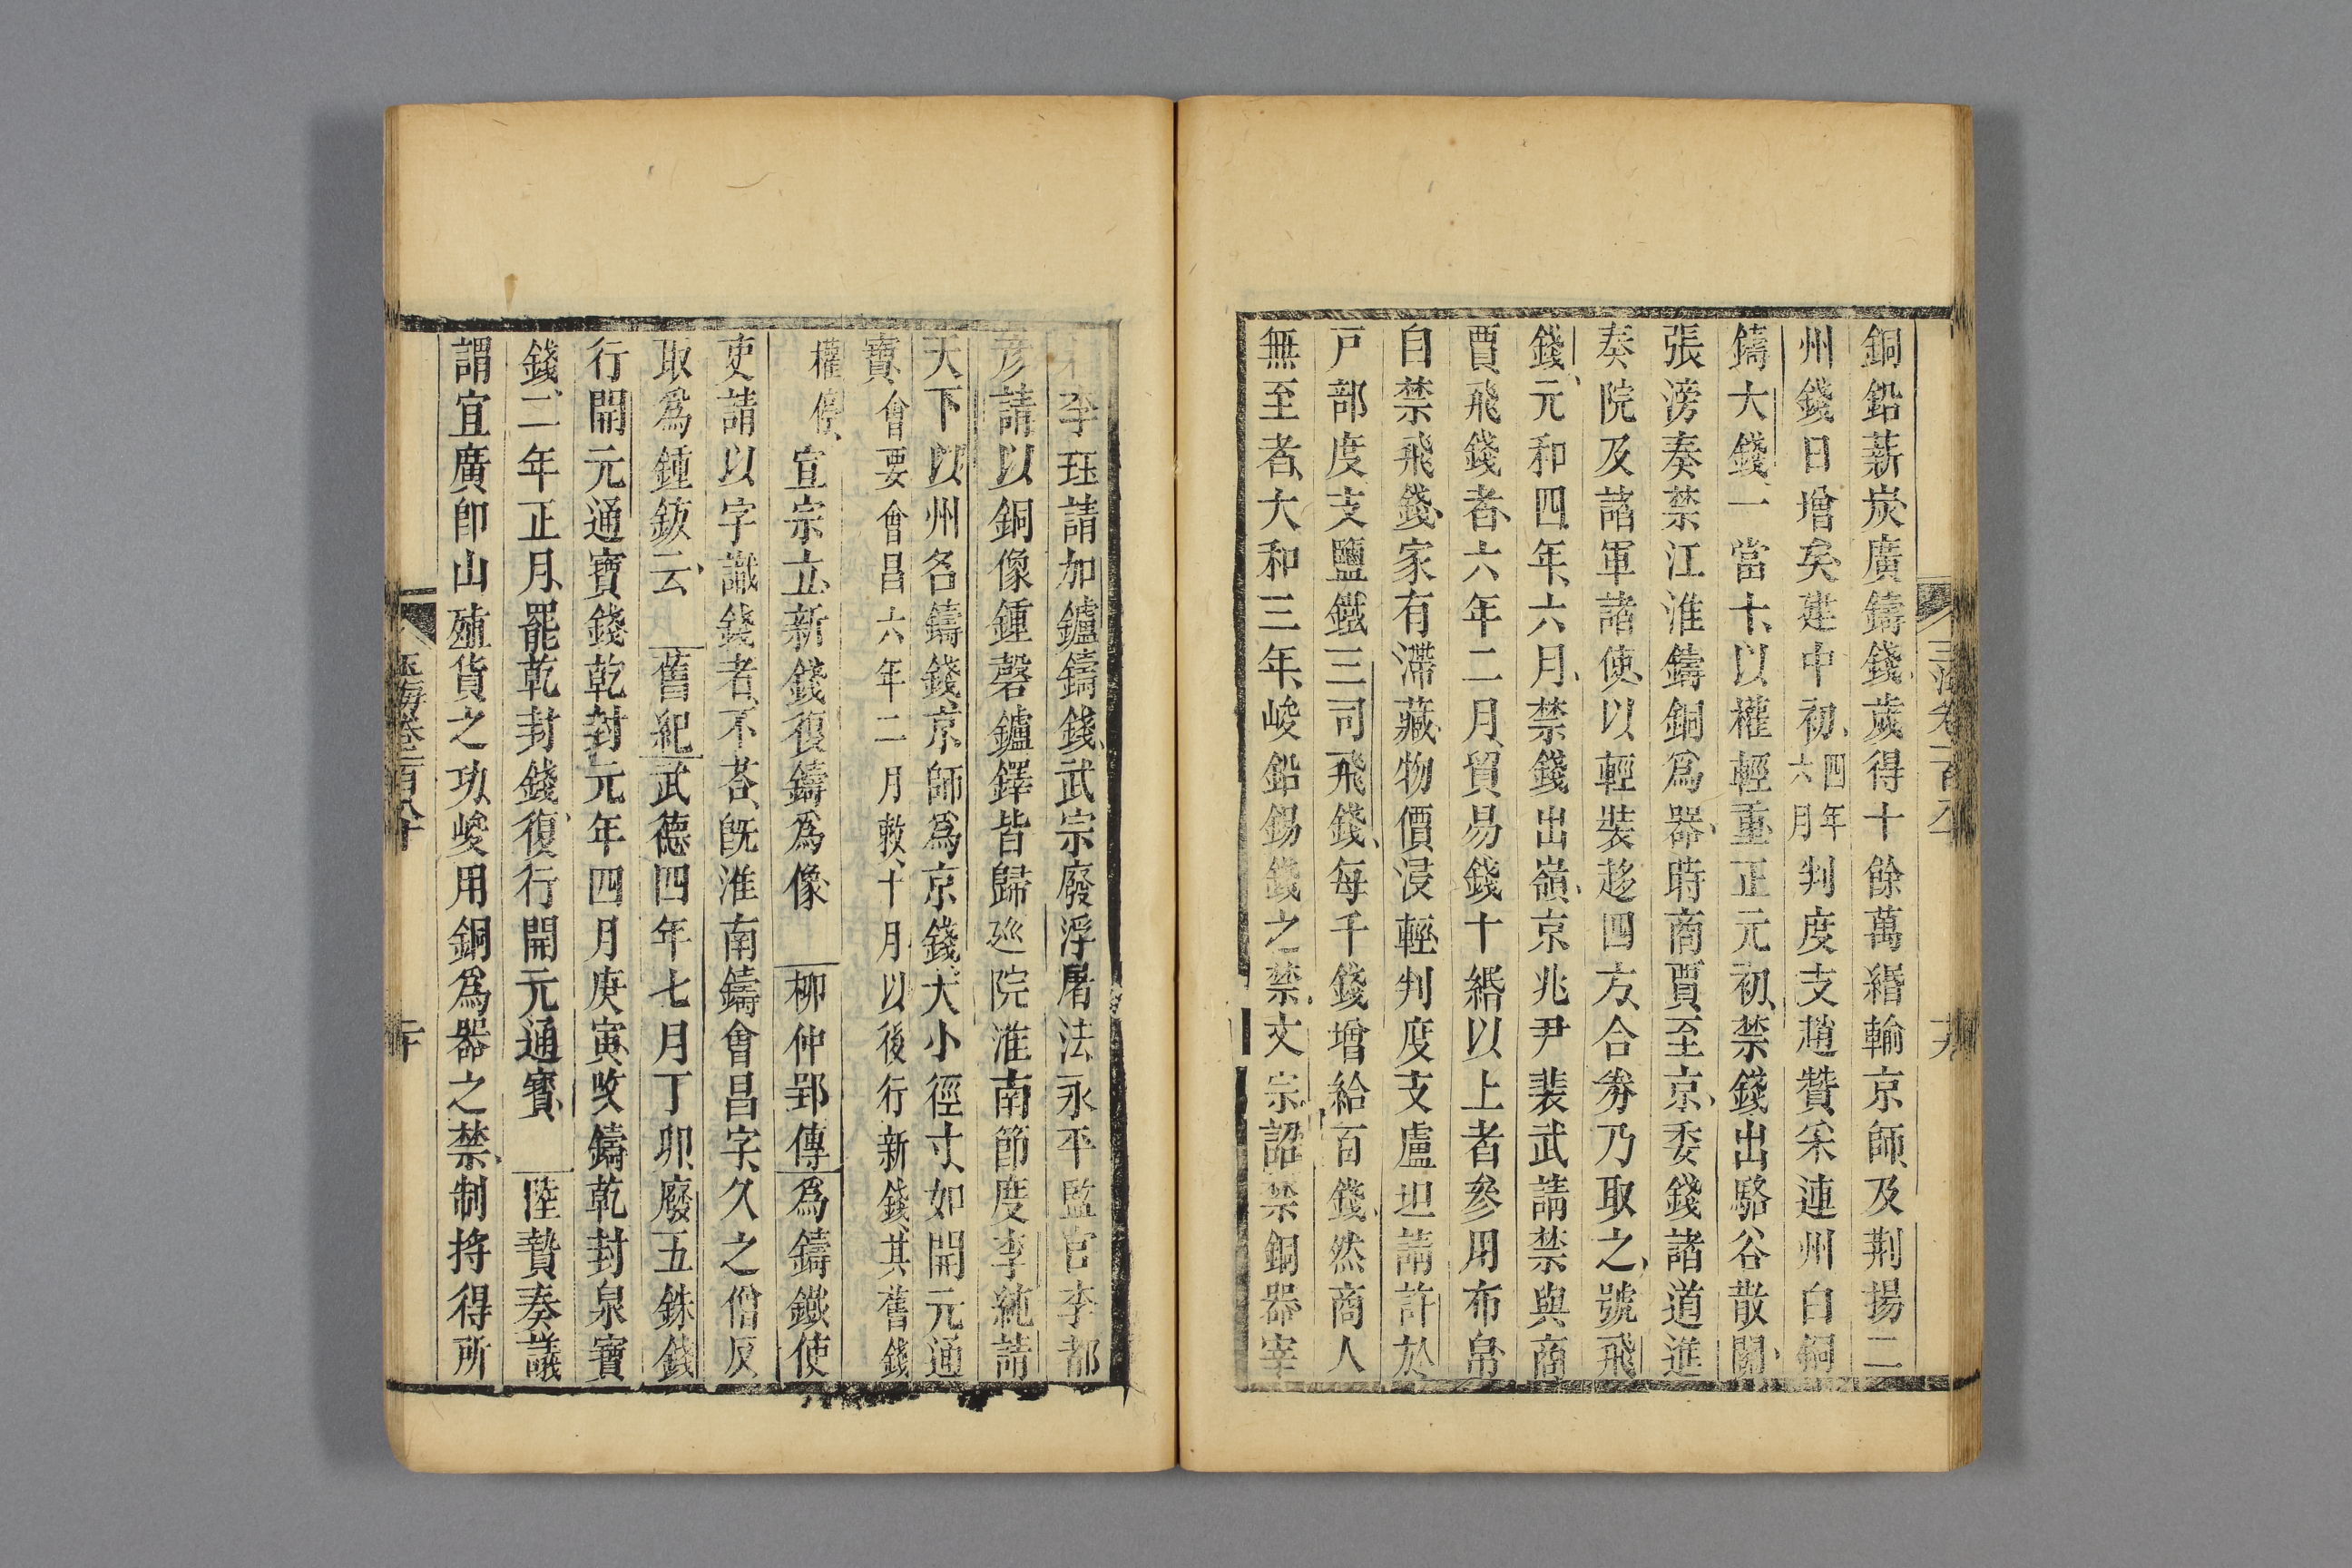 銅鉛薪炭廣鑄錢歲得十餘萬緡輸京師及荆揚二
州錢日增矣建中初四年六月判度支趙贊釆連州白銅
鑄大錢一當十以權輕重正元初禁錢出駱谷散關
張滂奏禁江淮鑄銅爲器時商賈至京委錢諸道進
奏院及諸軍諸使以輕裝趍四方合劵乃取之號飛
錢元和四年六月禁錢出嶺京兆尹裴武請禁與商
賈飛錢者六年二月貿易錢十緡以上者參用布帛
自禁飛錢家有滯藏物價浸輕判度支盧坦請許於
戸部度支鹽鐵三司飛錢每千錢增給百錢然商人
無至者大和三年峻鉛錫錢之禁文宗詔禁銅器宰
李珏請加鑪鑄錢武宗廢浮屠法永平監官李郁
彦請以銅像鍾磬鑪鐸皆歸廵院淮南節度李純請
天下以州名鑄錢京師爲京錢大小徑寸如開元通
寶會要會昌六年二月敕十月以後行新錢其舊錢
權停宣宗立新錢復鑄爲像 柳仲郢傳爲鑄鐵使
吏請以字識錢者不荅旣淮南鑄會昌字久之僧反
取爲鍾鈸云 舊紀武德四年七月丁卯廢五銖錢
行開元通寶錢乾封元年四月庚寅改鑄乾封泉寶
錢二年正月罷乾封錢復行開元通寳 陸贄奏議
謂宜廣卽山殖貨之功峻用銅爲器之禁制持得所
玉海卷一百八十
二十